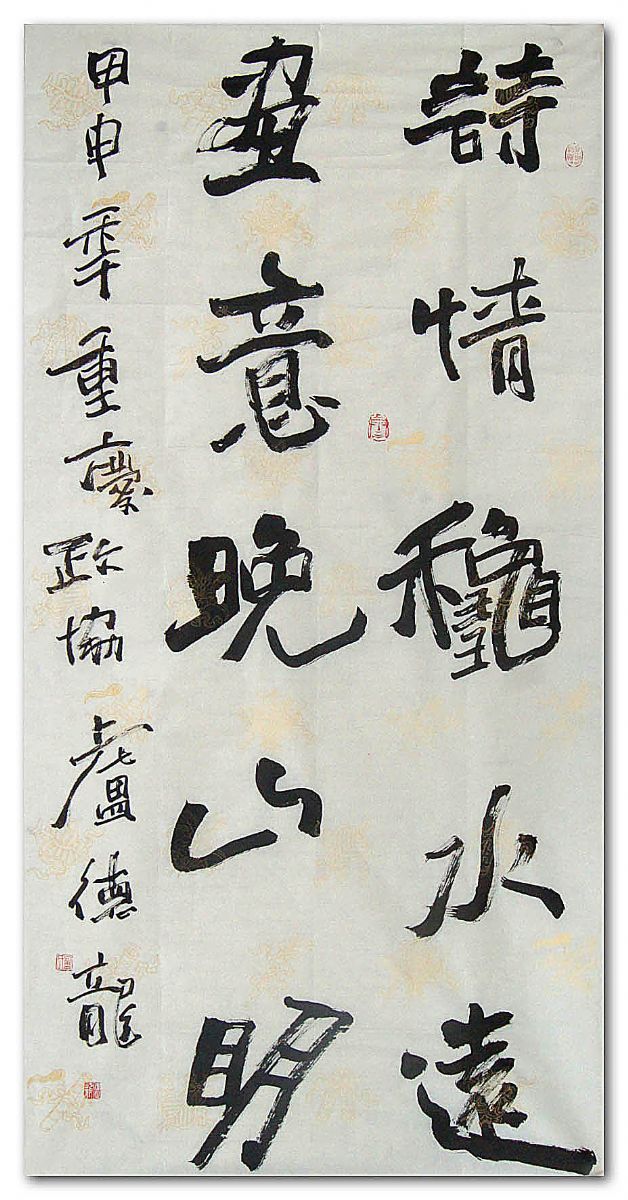 詩情龝水遠
畫意晚山明
甲申秊重慶政協盧德龍